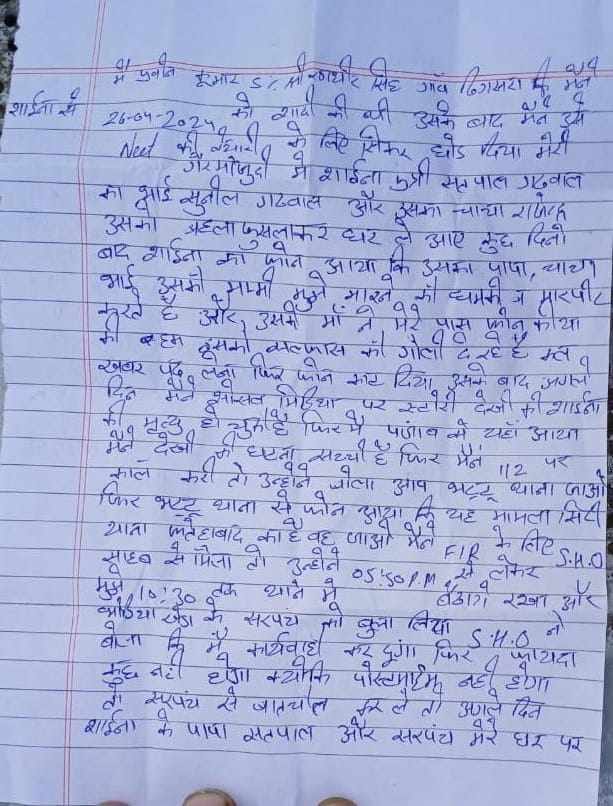 मैं प्रवीन कुमार S/o श्री रणधीर सिंह गाँव ढिंगसरा कि मैंने
शाईना से 26-04-2024 को शादी की थी उसके बाद मैंने उसे
Neet की तैयारी के लिए सिकर छोड दिया मेरी
गैरमोजुदी में शाईना पुत्री सतपाल गढवाल
का भाई सुनील गढवाल और इसका चाचा राजेन्द्र
उसको बहला फुसलाकर घर ले आए कुछ दिनो
बाद शाईना का फोन आया कि उसका पापा, चाचा
भाई उसकी मम्मी मुझे मारने की धमकी व मारपीट
करते है और उसकी माँ ने मेरे पास फोन कीया
की हम इसको सल्फास की गोली दे रहे है कल
खबर पढ लेना फिर फोन काट दिया उसके बाद अगले
दिन मैने सोसल मिडिया पर स्टोरी देखी की शाईना
की मृत्यु हो चुकी है फिर मै पंजाब से यहाँ आया
मैने देखी की घटना सच्ची है फिर मैने 112 पर
काल करी तो उन्होने बोला आप भट्टू थाना जाओ
फिर भट्टू थाना से फोन आया कि यह मामला सिटी
थाना फतेहाबाद का है वह जाओ मैने FIR के लिए S.H.O
साहब से मिला तो उन्होने 05:50 P.M से लेकर
मुझे 10:30 तक थाने मे बैठाये रखा और
खेडा के सरपंच को बुला लिया S.H.O ने
बोला कि मै कार्यवाही कर दूंगा फिर फायदा
कुछ नही होगा क्योंकि पोस्टमार्टम नही होगा
तो सरपंच से बातचीत कर ले तो अगले दिन
शाईना के पापा सतपाल और सरपंच मेरे घर पर